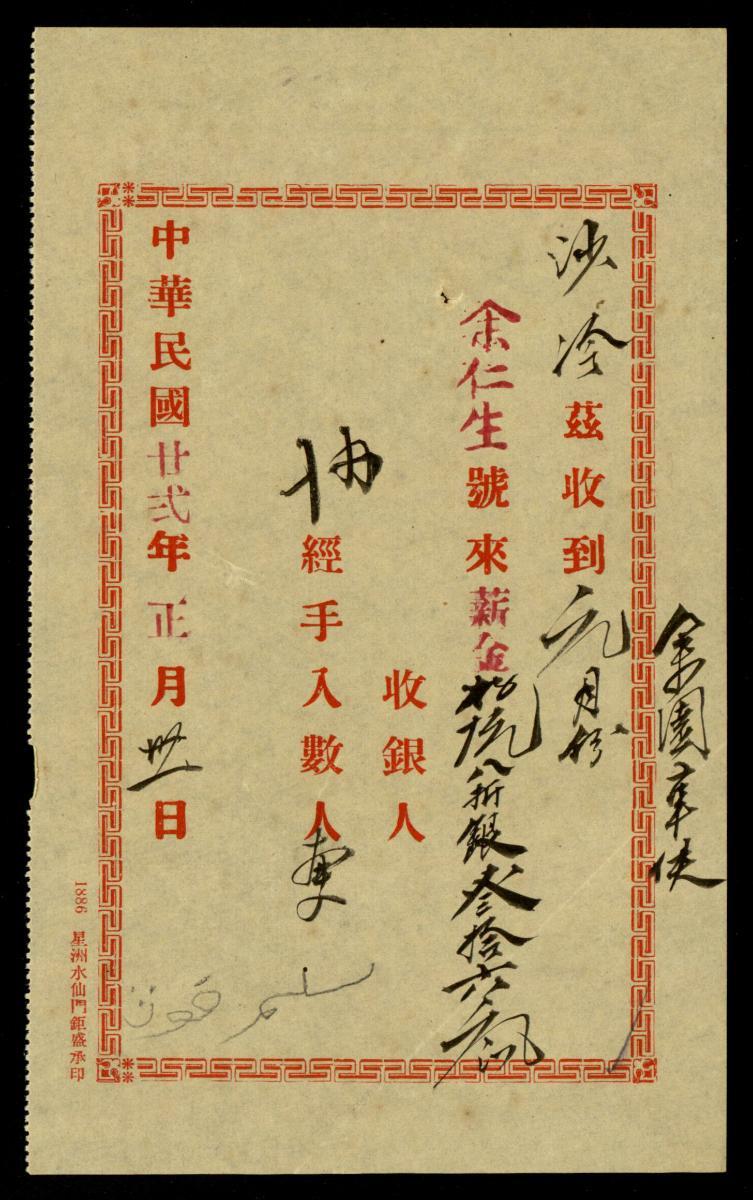 余園車伕
沙冷茲收到元月份
余仁生號來薪金 八折銀叁拾六
收銀人
經手入數人
中華民國廿弍年正月卅一日
1886 星洲水仙門鉅盛承印